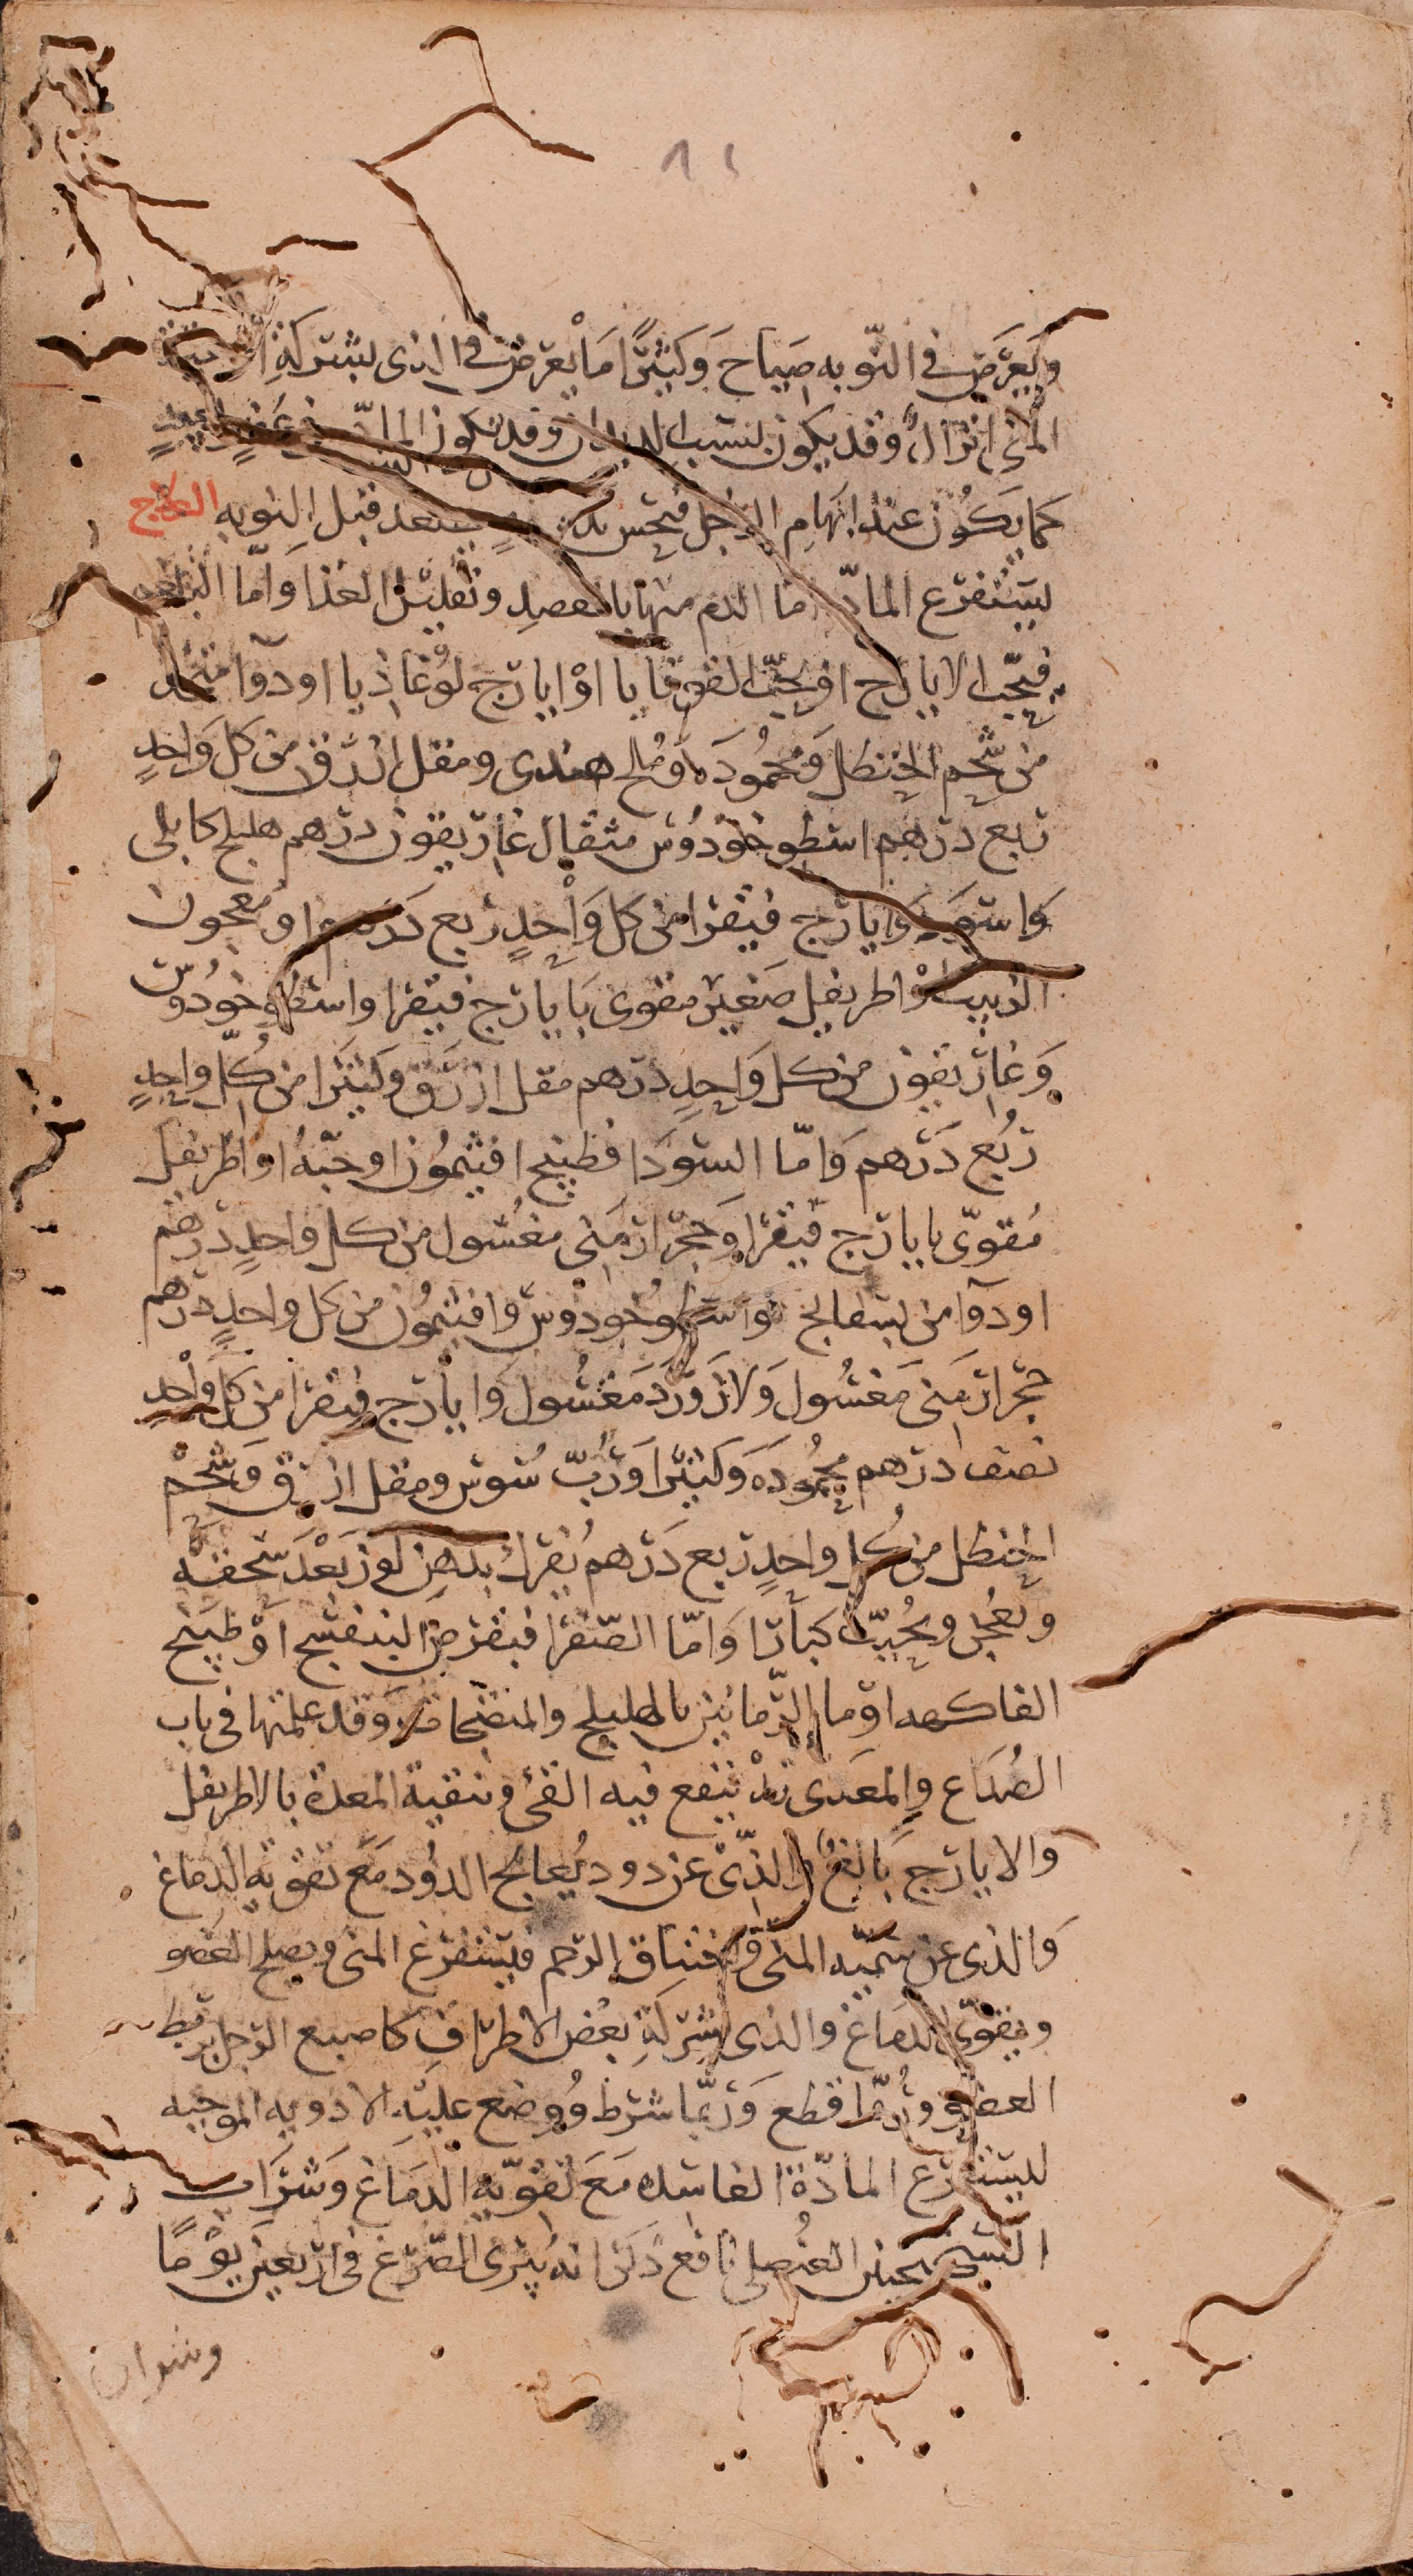 ويعرض في النوبه صياح وكثيرا ما يعرض في الذي بشركة
المني انزال وقد يكون لسبب الديدان وقد يكون الماده في عضو
كما يكون عند ابهام الرجل فيحس قبل النوبه العلاج
ليستفرغ الماده اما الدم منها بالفصد وتقليل الغذا واما البلغم
فبحب الايارج او بحب القوقايا او ايارج لوغاذيا او دوا متخذ
من شحم الحنظل ومحموده وملح هندي ومقل ازرق من كل واحد
ربع درهم اسطوخودوس مثقال غاريقون درهم هليلج كابلي
واسود وايارج فيقرا من كل واحد ربع درهم او معجون
الزبيب او اطريفل صغير مقوى بايارج فيقرا واسطوخودوس
وغاريقون من كل واحد درهم مقل ازرق وكثيرا من كل واحد
ربع درهم واما السودا فطبيخ افيثمون او حبه او اطريفل
مقوى بايارج فيقرا وحجر ارمني مغسول من كل واحد درهم
او دوا من بسفايج واسطوخودوس وافيثمون من كل واحد درهم
حجر ارمني مغسول ولازورد مغسول وايارج فيقرا من كل واحد
نصف درهم محموده وكثيرا ورب سوس ومقل ازرق وشحم
الحنظل من كل واحد ربع درهم يفرك بدهن لوز بعد سحقه
ويعجن ويحبب كبارا واما الصفرا فبقرص البنفسج او طبيخ
الفاكهه او ما الرمانين بالهليلج والمنضجات وقد علمتها في باب
الصداع والمعدي ينفع فيه القئ وتنقية المعدة بالاطريفل
والايارج بالغ والذي عن دود يعالج الدود مع تقويه الدماغ
والذي عن سميه المني واختناق الرحم فيستفرغ المني ويصلح العضو
ويقوى الدماغ والذي بشركة بعض الاطراف كاصبع الرجل يربط
العضو وربما قطع وربما شرط ووضع عليه الادويه الموجبه
ليستفرغ المادة الفاسده مع تقويه الدماغ وشراب
السكنجبين العنصلي نافع ذكر انه يبرئ الصرع في اربعين يوما